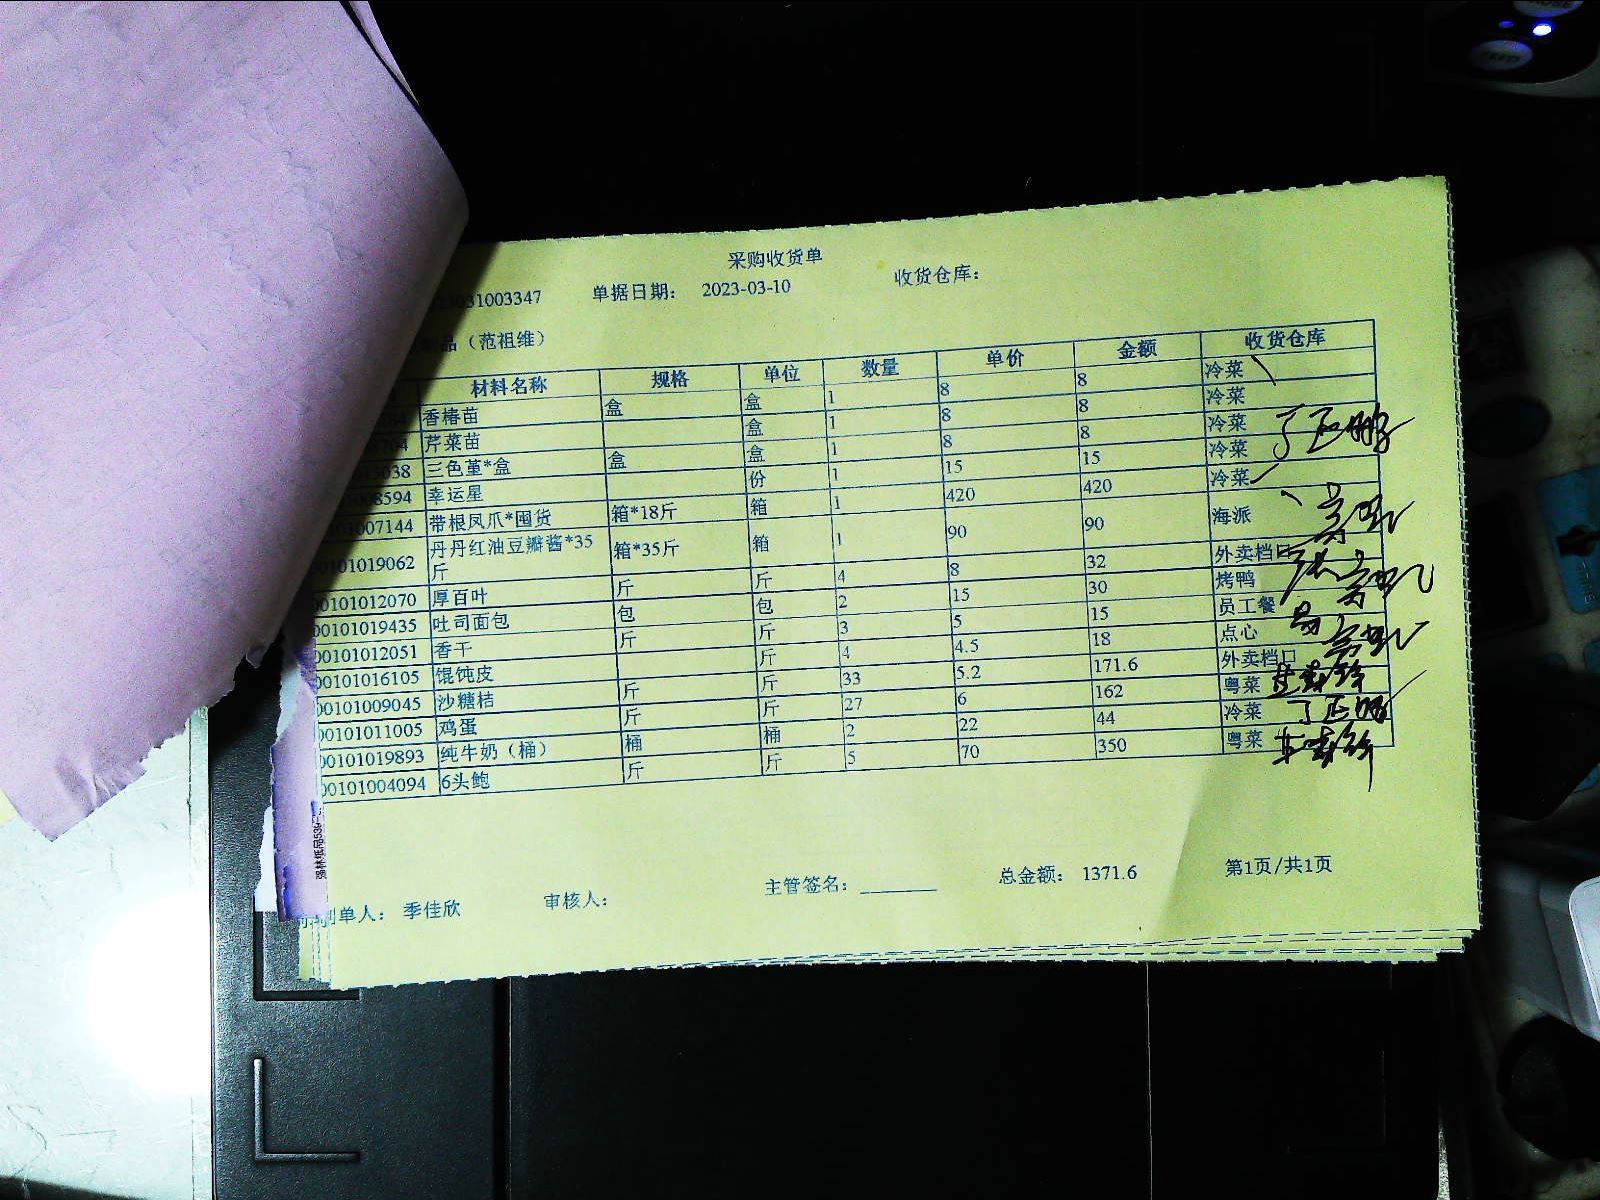 采购收货单
3031003347 单据日期： 2023-03-10 收货仓库：
制品（范祖维）
材料名称 规格 单位 数量 单价 金额 收货仓库
香椿苗 盒 盒 1 8 8 冷菜
704 芹菜苗 盒 1 8 8 冷菜
15038 三色堇*盒 盒 盒 1 8 8 冷菜
008594 幸运星 份 1 15 15 冷菜
101007144 带根凤爪*囤货 箱*18斤 箱 1 420 420 冷菜
00101019062 丹丹红油豆瓣酱*35斤 箱*35斤 箱 1 90 90 海派
00101012070 厚百叶 斤 斤 4 8 32 外卖档口
00101019435 吐司面包 包 包 2 15 30 烤鸭
00101012051 香干 斤 斤 3 5 15 员工餐
00101016105 馄饨皮 斤 4 4.5 18 点心
00101009045 沙糖桔 斤 斤 33 5.2 171.6 外卖档口
00101011005 鸡蛋 斤 斤 27 6 162 粤菜
00101019893 纯牛奶（桶） 桶 桶 2 22 44 冷菜
00101004094 6头鲍 斤 斤 5 70 350 粤菜
丁正鹏
丁正鹏
制单人： 季佳欣 审核人： 主管签名：________ 总金额： 1371.6 第1页/共1页